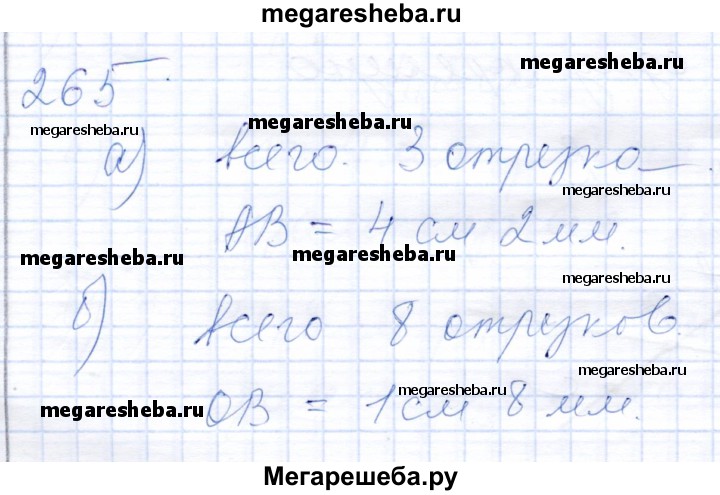 megaresheba.ru
megaresheba.ru
265.
megaresheba.ru
megaresheba.ru
а) всего. 3 отрезка.
megaresheba.ru
АВ = 4 см 2 мм.
megaresheba.ru
megaresheba.ru
megaresheba.ru
б) всего 8 отрезков.
megaresheba.ru
megaresheba.ru
megaresheba.ru
ОВ = 1 см 8 мм.
Мегарешеба.ру